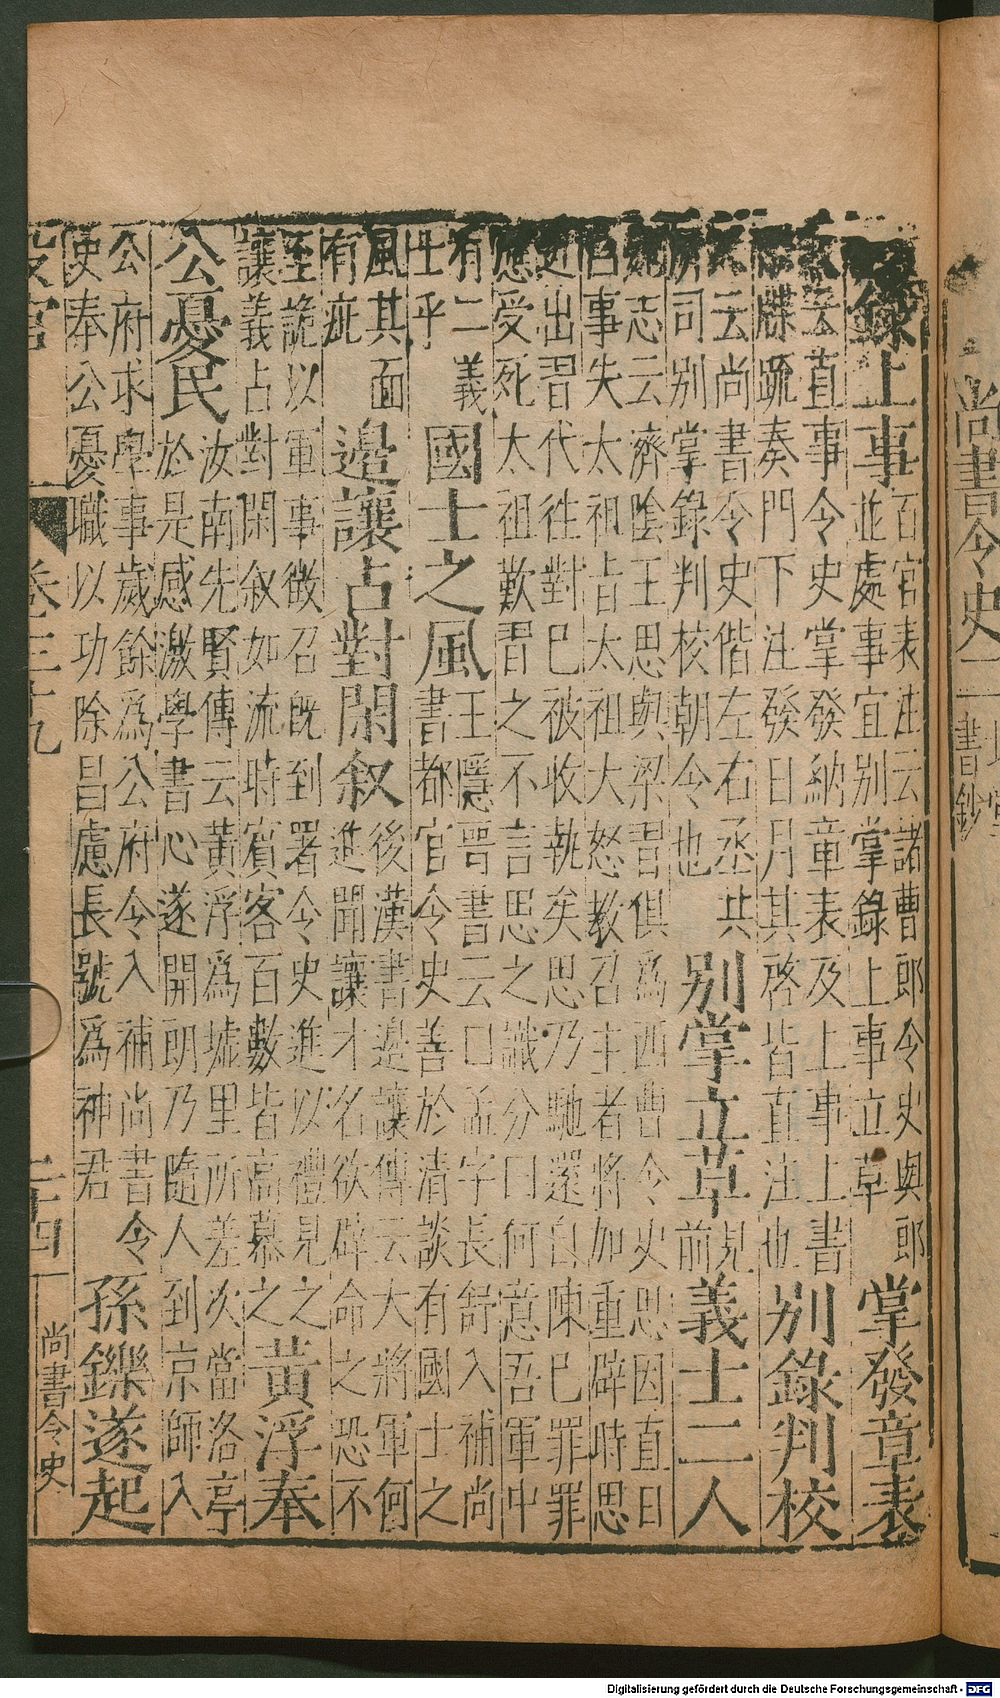 尚書令史一
書鈔
錄上事
百官表注云諸曹郎令史與郎
並處事宜別掌錄上事立草
掌發章表
云直事令史掌發納章表及上事上書
牒䟽奏門下注發日月其啓皆直注也
別錄判校
云尚書令史偕左右丞共
所司別掌錄判校朝令也
別掌立草
見
前
義士二人
魏志云濟陰王思與梁習俱爲西曹令史思因直日
白事失太祖旨太祖大怒教召主者將加重辟時思
近出習代往對已被收執矣思乃馳還自陳已罪罪
應受死太祖歎習之不言思之識分曰何意吾軍中
有二義
士乎
國士之風
王隱晉書云口孟字長舒入補尚
書都官令史善於清談有國士之
風其面
有疵
邉讓占對閑叙
後漢書邉讓傳云大將軍何
進聞讓才名欲辟命之恐不
至詭以軍事徵召旣到署令史進以禮見之
讓義占對閑叙如流時賓客百數皆高慕之
黃浮奉
公憂民
汝南先賢傳云黃浮爲墟里所差次當洛亭
於是感激學書心遂開朗乃隨人到京師入
公府求學事歲餘爲公府令入補尚書令
史奉公憂職以功除昌慮長號爲神君
孫鑠遂起
設官
卷三十九
二十四
尚書令史
Digitalisierung gefördert durch die Deutsche Forschungsgemeinschaft - DFG